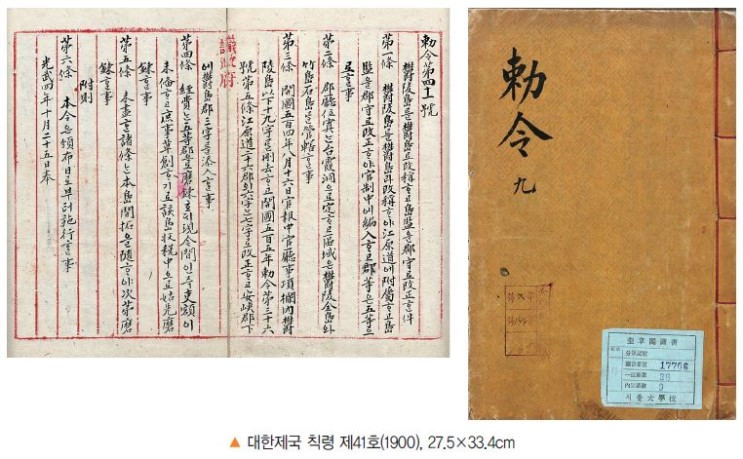 勅令第四十一號
鬱陵島를鬱島로改稱ᄒᆞ고島監을郡守로改正ᄒᆞᆫ件
第一條 鬱陵島를鬱島라改稱ᄒᆞ야江原道에附屬ᄒᆞ고島
監을郡守로改正ᄒᆞ야官制中에編入ᄒᆞ고郡等은五等으
로ᄒᆞᆯ事
第二條 郡廳位寘ᄂᆞᆫ台霞洞으로定ᄒᆞ고區域은鬱陵全島와
竹島石島를管轄ᄒᆞᆯ事
第三條 開國五百四年八月十六日官報中官廳事項欄內鬱
陵島以下十九字를刪去ᄒᆞ고開國五百五年勅令第三十六
號第五條江原道二十六郡의六字ᄂᆞᆫ七字로改正ᄒᆞ고安峽郡下
議政府
에鬱島郡三字를添入ᄒᆞᆯ事
第四條 經費ᄂᆞᆫ五等郡으로磨鍊호ᄃᆡ現今間인즉吏額이
未備ᄒᆞ고庶事草創ᄒᆞ기로該島收稅中으로姑先磨
鍊ᄒᆞᆯ事
第五條 未盡ᄒᆞᆫ諸條ᄂᆞᆫ本島開拓을隨ᄒᆞ야次第磨
鍊ᄒᆞᆯ事
附則
第六條 本令은頒布日로부터施行ᄒᆞᆯ事
光武四年十月二十五日奉
勅令 九
奎章閣圖書
圖書番號 17706
서울大學校
▲ 대한제국 칙령 제41호(1900), 27.5×33.4cm